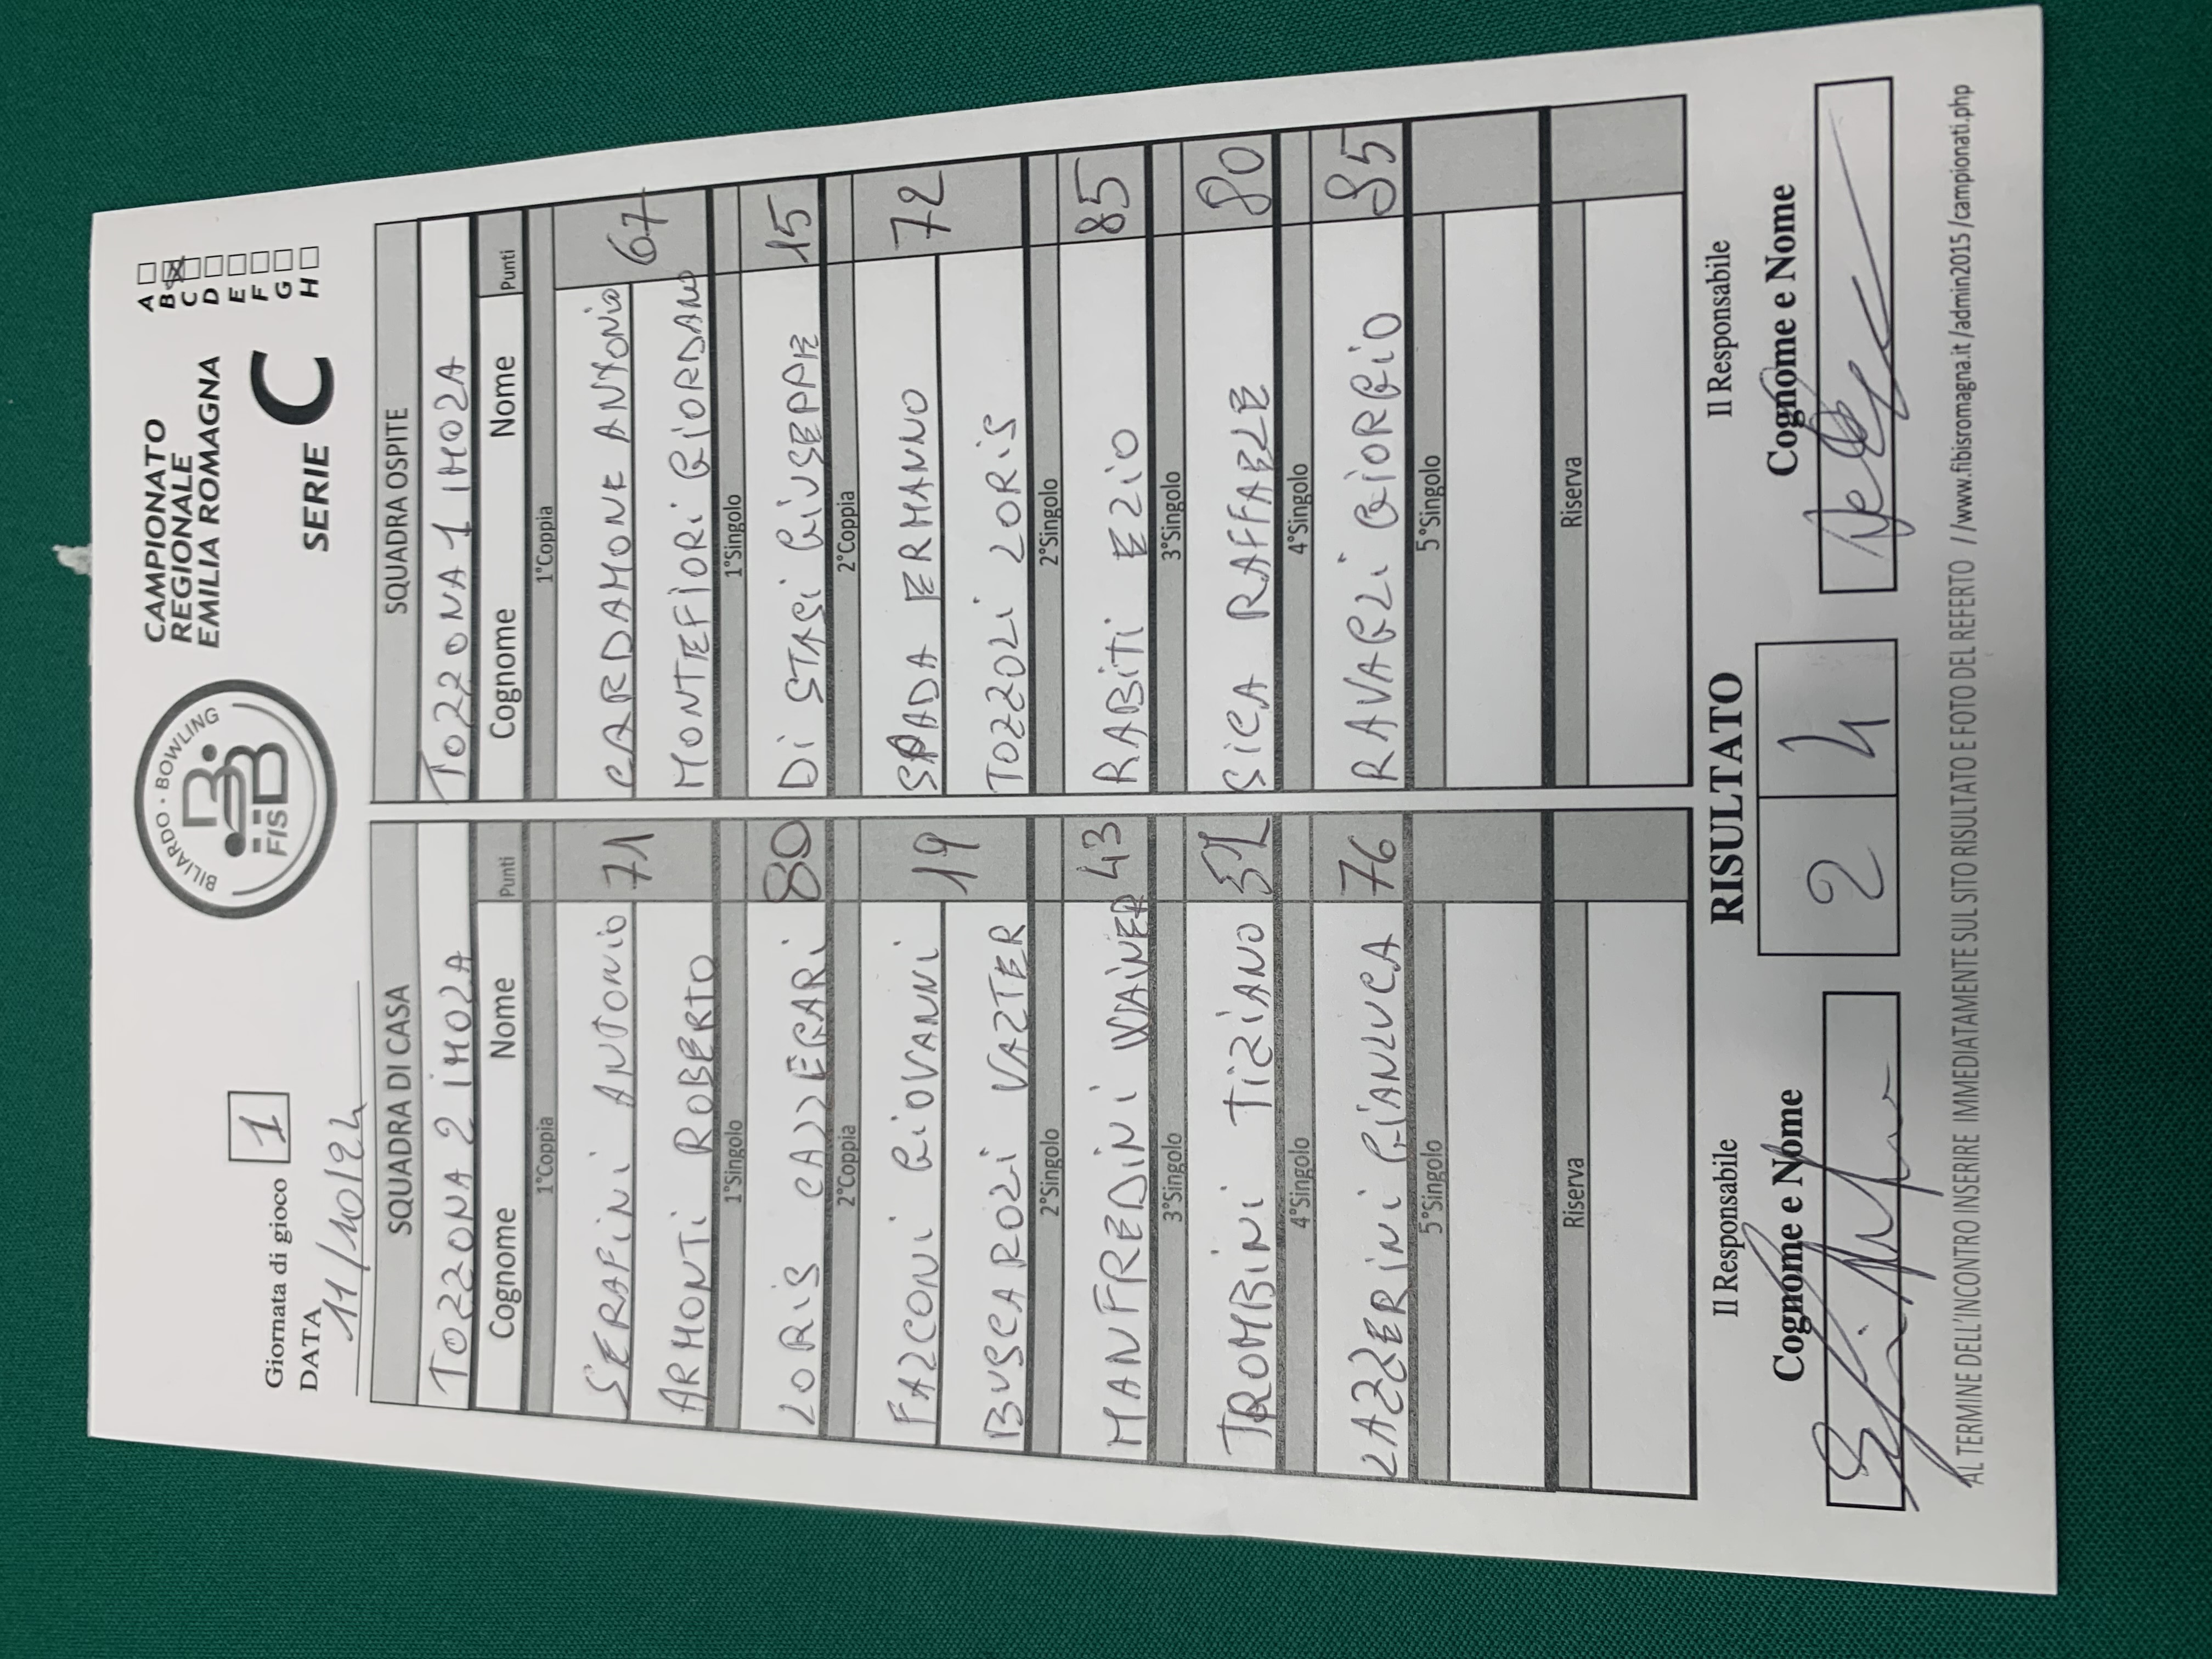 BILIARDO · BOWLING
FISBB
CAMPIONATO
REGIONALE
EMILIA ROMAGNA
SERIE C
A
B
C
D
E
F
G
H
Giornata di gioco 1
DATA
11/10/24
SQUADRA DI CASA SQUADRA OSPITE
TOZZONA 2 IMOLA TOZZONA 1 IMOLA
Cognome Nome Punti Cognome Nome Punti
1°Coppia 1°Coppia
SERAFINI ANTONIO 71 CARDAMONE ANTONIO 67
ARMONTI ROBERTO MONTEFIORI GIORDANO
1°Singolo 1°Singolo
LORIS CALDERARI 80 DI STASI GIUSEPPE 15
2°Coppia 2°Coppia
FALCONI GIOVANNI 19 SPADA ERMANNO 72
BUSCAROLI VALTER TOZZOLI LORIS
2°Singolo 2°Singolo
MANFREDINI WAINER 43 RABITI EZIO 85
3°Singolo 3°Singolo
TROMBINI TIZIANO SICA RAFFAELE 80
4°Singolo 4°Singolo
LAZZERINI GIANLUCA 76 RAVAGLI GIORGIO 85
5°Singolo 5°Singolo
Riserva Riserva
Il Responsabile RISULTATO Il Responsabile
Cognome e Nome 2 4 Cognome e Nome
AL TERMINE DELL'INCONTRO INSERIRE IMMEDIATAMENTE SUL SITO RISULTATO E FOTO DEL REFERTO //www.fibisromagna.it/admin2015/campionati.php